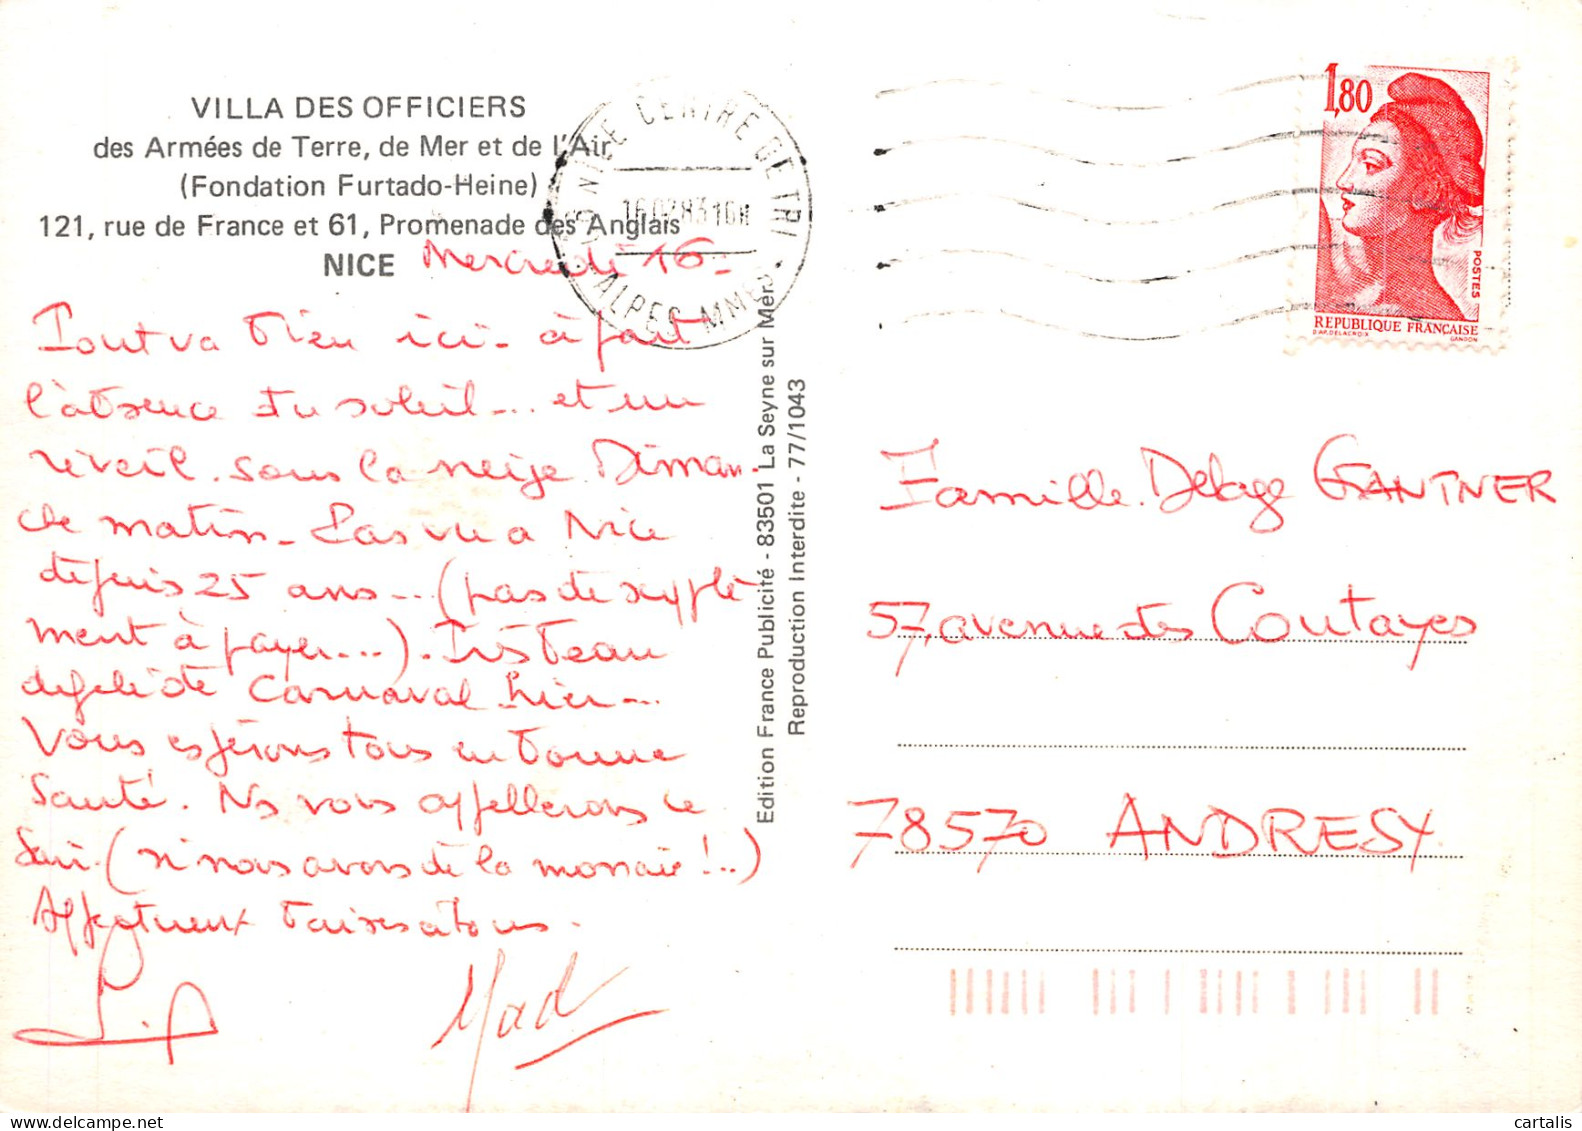 VILLA DES OFFICIERS
des Armées de Terre, de Mer et de l'Air
(Fondation Furtado-Heine)
121, rue de France et 61, Promenade des Anglais
NICE
Mercredi 16 -
Tout va bien ici - à part
l'absence du soleil ... et un
réveil sous la neige Diman-
che matin - Pas vu à Nice
depuis 25 ans ... (pas de supplé
ment à payer ...). Très beau
défilé de Carnaval hier ...
Vous espérons tous en bonne
Santé. Ns vous appellerons ce
Soir (si nous avons de la monnaie !..)
Affectueux baisers à tous.
Mad
Edition France Publicité - 83501 La Seyne sur Mer.
Reproduction Interdite - 77/1043
06 NICE CENTRE DE TRI
16.02.83 16H
ALPES MMES
1,80
POSTES
REPUBLIQUE FRANÇAISE
D'AP. DELACROIX
GANDON
Famille Delage GANTNER
57, avenue des Coutayes
78570 ANDRESY
cartalis